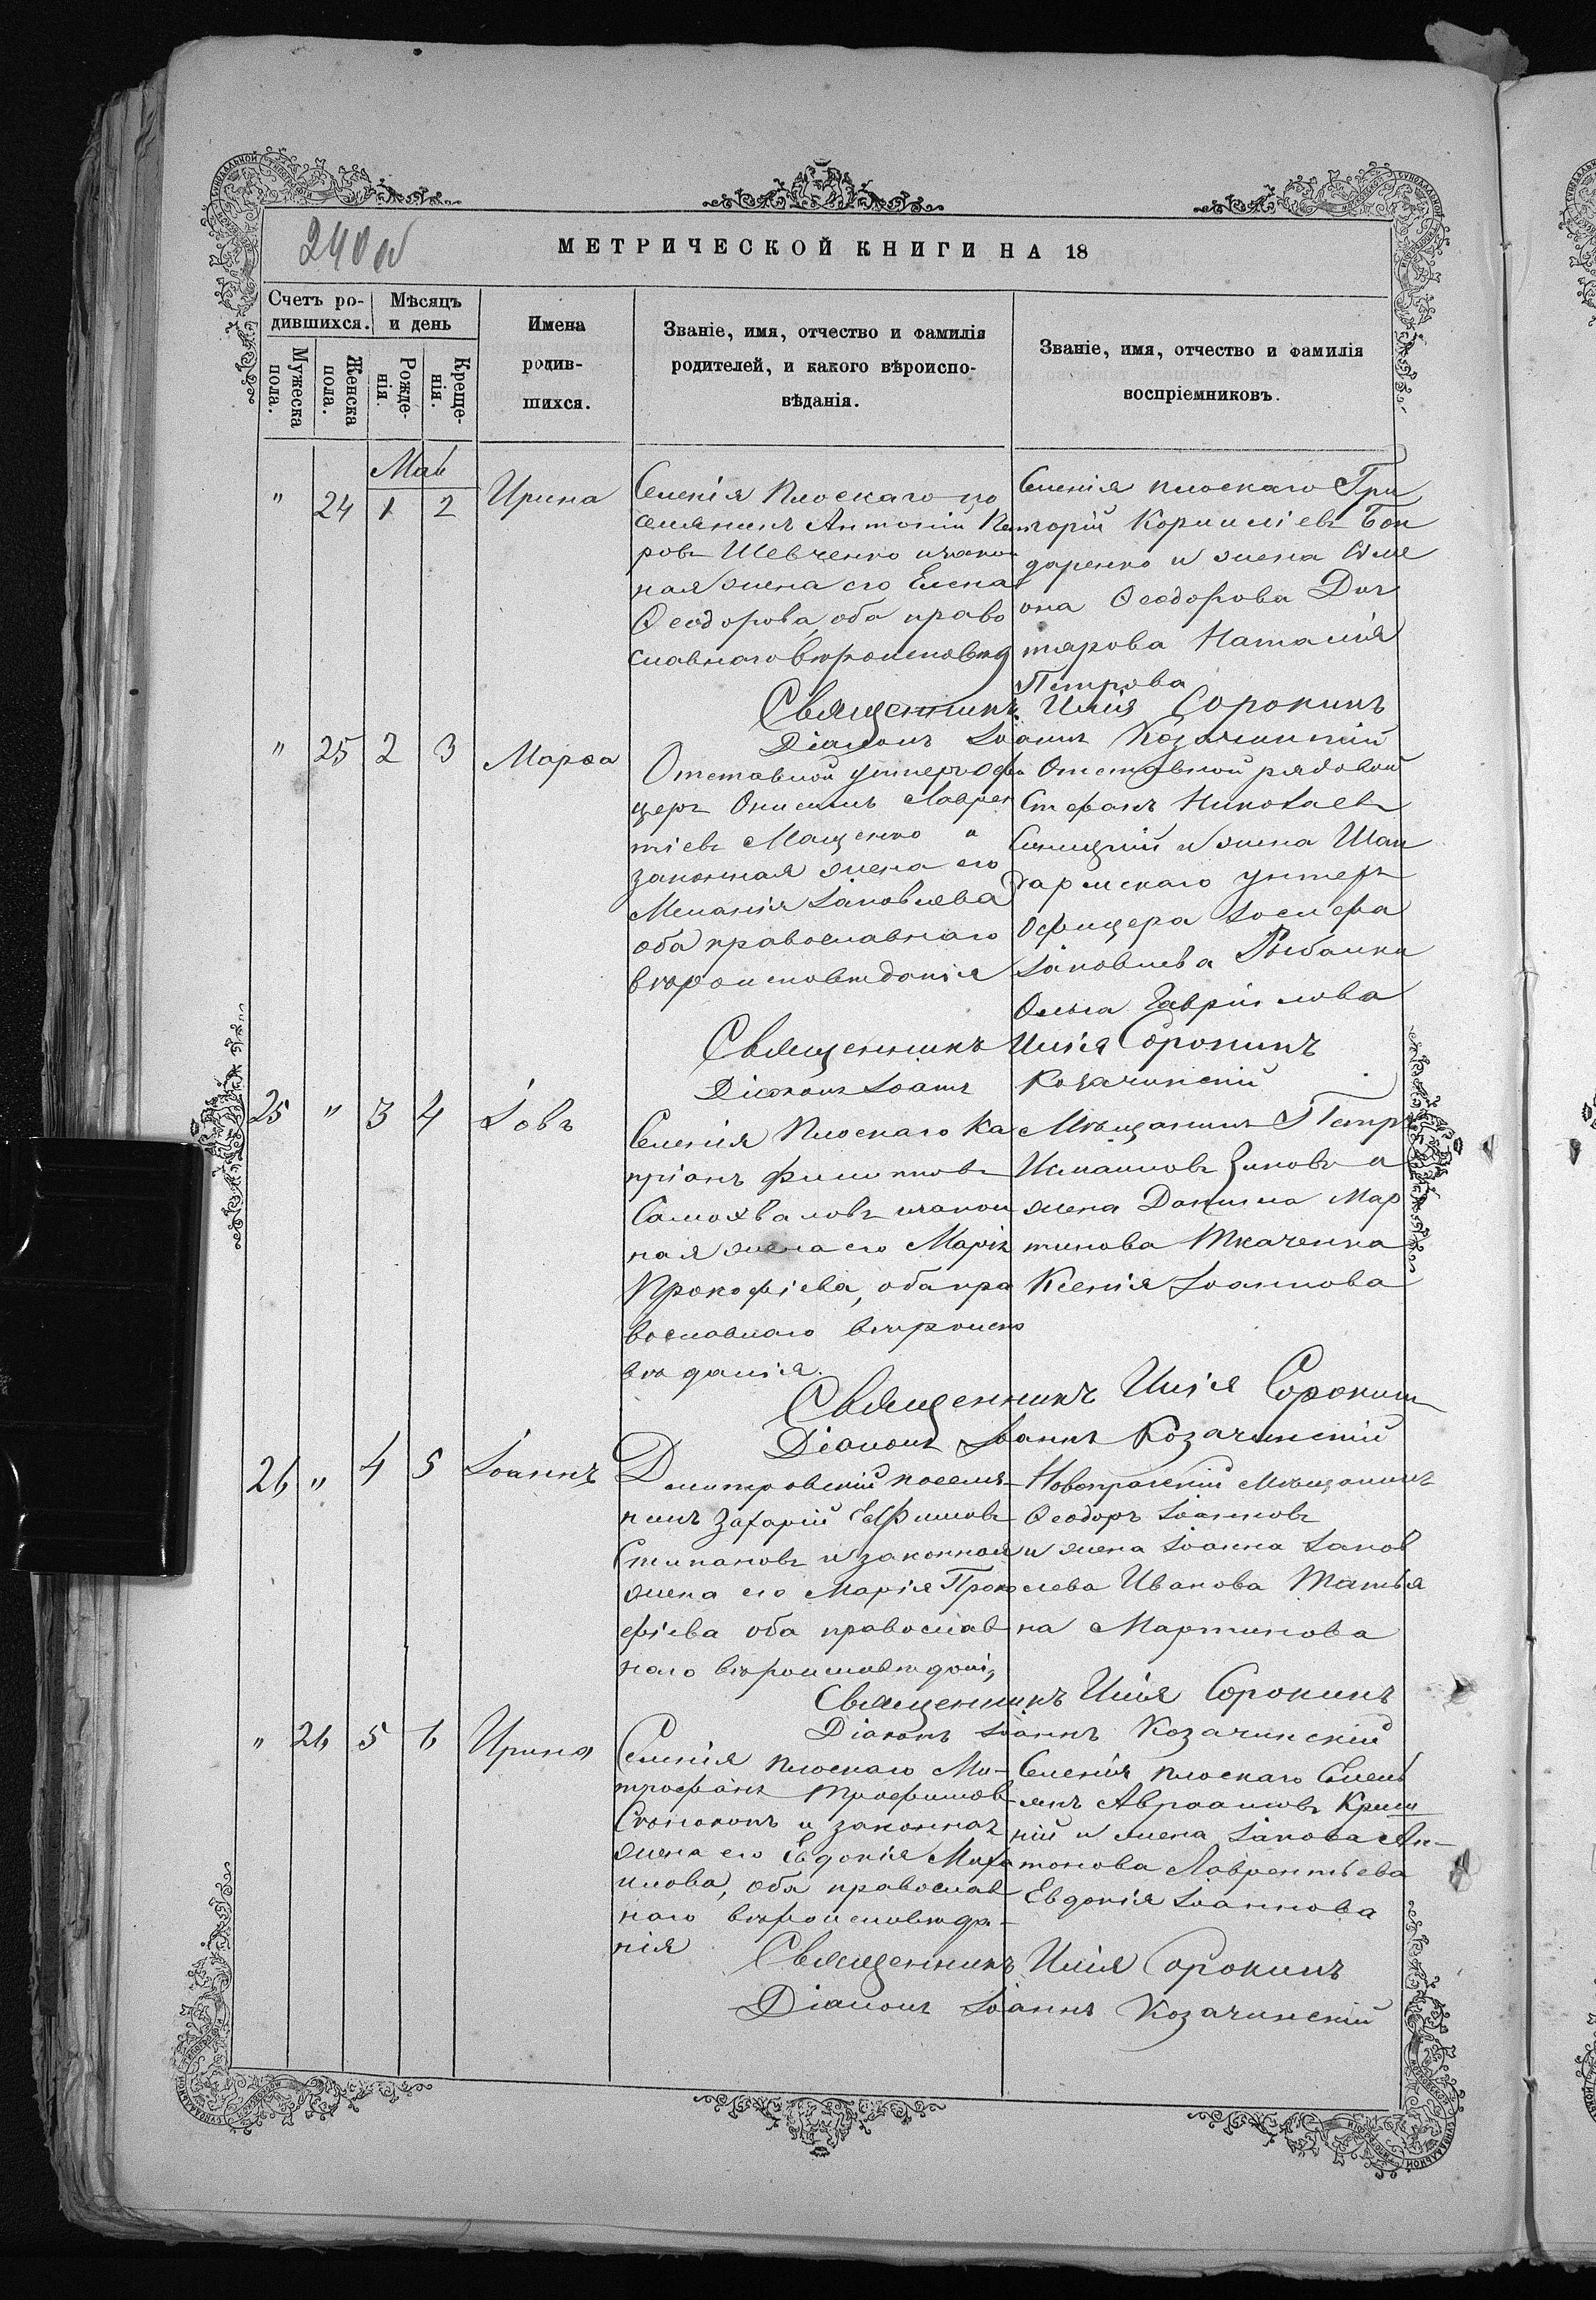 240 об
МЕТРИЧЕСКОЙ КНИГИ НА 18
Счетъ ро-
дившихся.
Мѣсяцъ
и день
Имена
родив-
шихся.
Званіе, имя, отчество и фамилія
родителей, и какого вѣроиспо-
вѣданія.
Званіе, имя, отчество и фамилія
воспріемниковъ.
Мужеска
пола.
Женска
пола.
Рожде-
нія.
Креще-
нія.
Май
" 24 1 2 Ирина
Селенія Плоскаго по
селянинъ Антоній Пет
ровъ Шевченко и закон
ная жена его Елена
Ѳеодорова, оба право
славнаго вѣроисповѣд
Селенія плоскаго Гри
горій Корниліевъ Бон
даренко и жена Симе
она Ѳеодорова Дих
тярова Наталія
Петрова
Священникъ Илія Сорокинъ
Діаконъ Іоаннъ Козачинскій
" 25 2 3 Марѳа
Отставной унтеръ офи
церъ Онисимъ Лаврен
тіевъ Мащенко и
законная жена его
Меланія Іаковлева
оба православнаго
вѣроисповѣданія
Отставной рядовой
Стефанъ Николаевъ
Синицкій и жена Жан
дармскаго унтеръ
офицера Іосифа
Іаковлева Рыбалки
Ольга Гавріилова
Священникъ Илія Сорокинъ
Діаконъ Іоаннъ Козачинскій
25 " 3 4 Іовъ
Селенія Плоскаго Ки
пріанъ Филипповъ
Самохваловъ и закон
ная жена его Марія
Прокофіева, оба пра
вославнаго вѣроиспо
вѣданія.
Мѣщанинъ Петръ
Измаиловъ Зиновъ и
жена Даниила Мар
тинова Ткаченка
Ксенія Іоаннова
Священникъ Илія Сорокинъ
Діаконъ Іоаннъ Козачинскій
26 " 4 5 Іоаннъ
Дмитровскій поселя-
нинъ Захарій Евфимовъ
Степановъ и законная
жена его Марія Проко
фіева оба православ
наго вѣроисповѣданія
Новопражскій мѣщанинъ
Ѳеодоръ Іоанновъ
и жена Іоанна Іаков
лева Иванова Татья
на Мартинова
Священникъ Илія Сорокинъ
Діаконъ Іоаннъ Козачинскій
" 26 5 6 Ирина
Селенія плоскаго Ми-
трофанъ Трофимовъ
и законная
жена его Евдокія Миха
илова, оба православ
наго вѣроисповѣда-
нія
Селенія плоскаго Емель
янъ Авраамовъ
и жена Іакова Ан-
тонова Лаврентьева
Евдокія Іоаннова
Священникъ Илія Сорокинъ
Діаконъ Іоаннъ Козачинскій